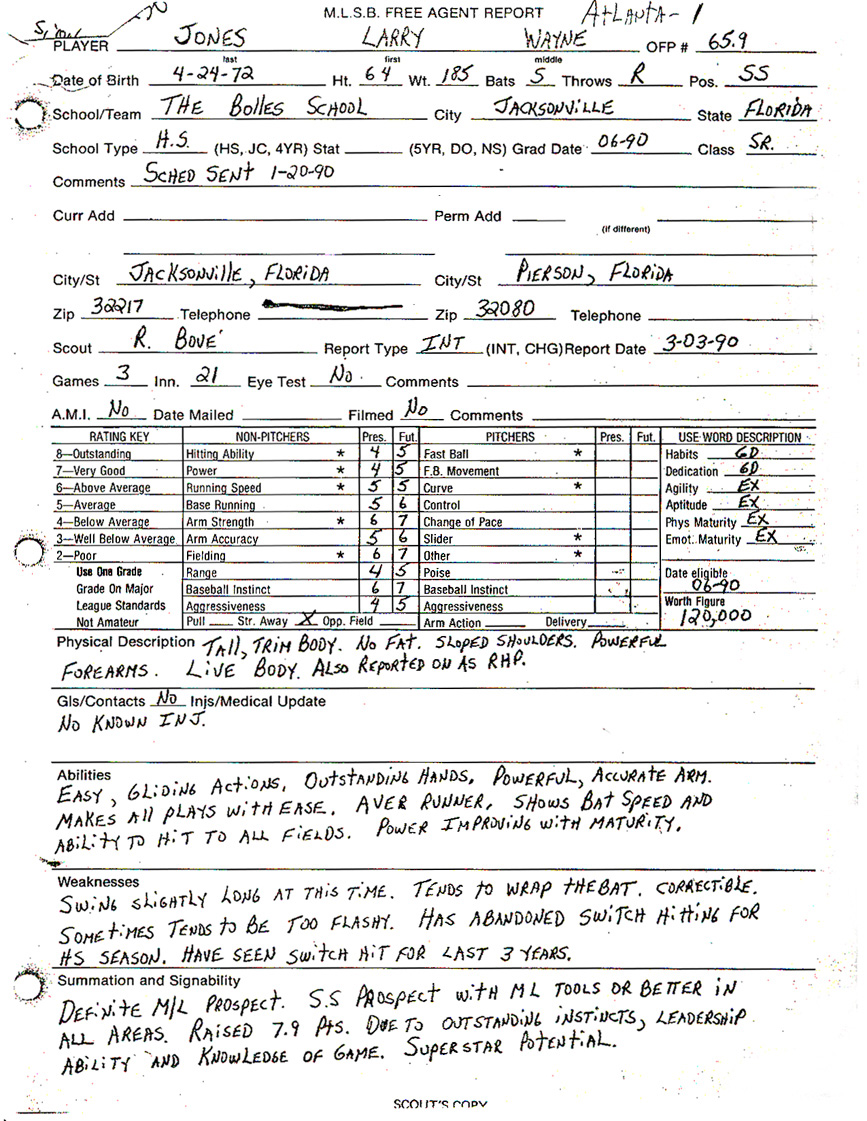 M.L.S.B. FREE AGENT REPORT ATLANTA- 1
PLAYER JONES LARRY WAYNE OFP # 65.9
last first middle
Date of Birth 4-24-72 Ht. 64 Wt. 185 Bats S Throws R Pos. SS
School/Team THE BOLLES SCHOOL City JACKSONVILLE State FLORIDA
School Type H.S. (HS, JC, 4YR) Stat (5YR, DO, NS) Grad Date 06-90 Class SR.
Comments SCHED SENT 1-20-90
Curr Add Perm Add
(if different)
City/St JACKSONVILLE, FLORIDA City/St PIERSON, FLORIDA
Zip 32217 Telephone Zip 32080 Telephone
Scout R. BOVE' Report Type INT (INT, CHG)Report Date 3-03-90
Games 3 Inn. 21 Eye Test No Comments
A.M.I. No Date Mailed Filmed No Comments
RATING KEY NON-PITCHERS Pres. Fut. PITCHERS Pres. Fut. USE WORD DESCRIPTION
8—Outstanding Hitting Ability * 4 5 Fast Ball * Habits GD
7—Very Good Power * 4 5 F.B. Movement Dedication GD
6—Above Average Running Speed * 5 5 Curve * Agility EX
5—Average Base Running 5 6 Control Aptitude EX
4—Below Average Arm Strength * 6 7 Change of Pace Phys Maturity EX
3—Well Below Average Arm Accuracy 5 6 Slider * Emot. Maturity EX
2—Poor Fielding * 6 7 Other *
Use One Grade Range 4 5 Poise Date eligible
Grade On Major Baseball Instinct 6 7 Baseball Instinct 06-90
League Standards Aggressiveness 4 5 Aggressiveness Worth Figure
Not Amateur Pull Str. Away X Opp. Field Arm Action Delivery 120,000
Physical Description TALL, TRIM BODY. NO FAT. SLOPED SHOULDERS. POWERFUL
FOREARMS. LIVE BODY. ALSO REPORTED ON AS RHP.
Gls/Contacts No Injs/Medical Update
NO KNOWN INJ.
Abilities
EASY, GLIDING ACTIONS, OUTSTANDING HANDS, POWERFUL, ACCURATE ARM.
MAKES ALL PLAYS WITH EASE. AVER RUNNER. SHOWS BAT SPEED AND
ABILITY TO HIT TO ALL FIELDS. POWER IMPROVING WITH MATURITY.
Weaknesses
SWING SLIGHTLY LONG AT THIS TIME. TENDS TO WRAP THE BAT. CORRECTIBLE.
SOMETIMES TENDS TO BE TOO FLASHY. HAS ABANDONED SWITCH HITTING FOR
HS SEASON. HAVE SEEN SWITCH HIT FOR LAST 3 YEARS.
Summation and Signability
DEFINITE M/L PROSPECT. S.S PROSPECT WITH ML TOOLS OR BETTER IN
ALL AREAS. RAISED 7.9 PTS. DUE TO OUTSTANDING INSTINCTS, LEADERSHIP
ABILITY AND KNOWLEDGE OF GAME. SUPERSTAR POTENTIAL.
SCOUT'S COPY